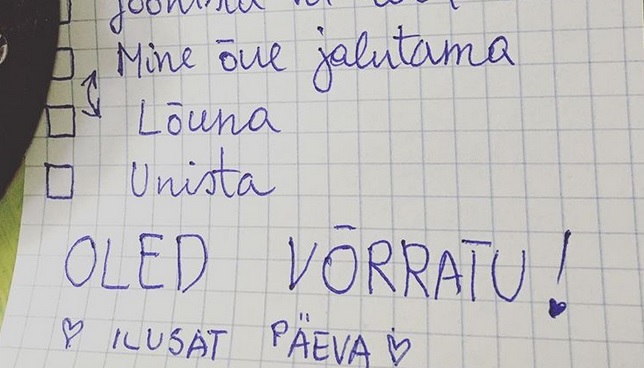 Mine õue jalutama
Lõuna
Unista
OLED VÕRRATU!
ILUSAT PÄEVA